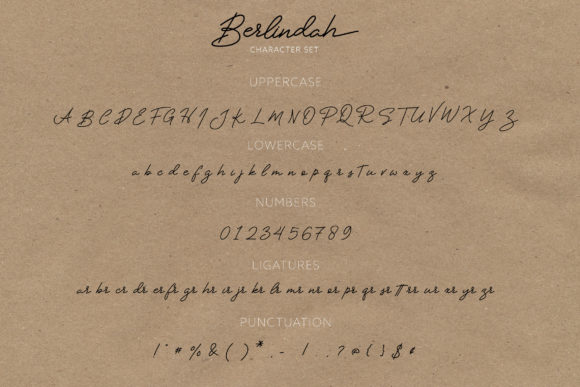 Berlindah
CHARACTER SET
UPPERCASE
A B C D E F G H I J K L M N O P Q R S T U V W X Y Z
LOWERCASE
a b c d e f g h i j k l m n o p q r s t u v w x y z
NUMBERS
0 1 2 3 4 5 6 7 8 9
LIGATURES
ar br cr dr er fr gr hr ir jr kr lr mr nr or pr qr sr tt rr ur ar xr yr zr
PUNCTUATION
! " # % & ( ) * , - . / : ? @ { } $ ¢